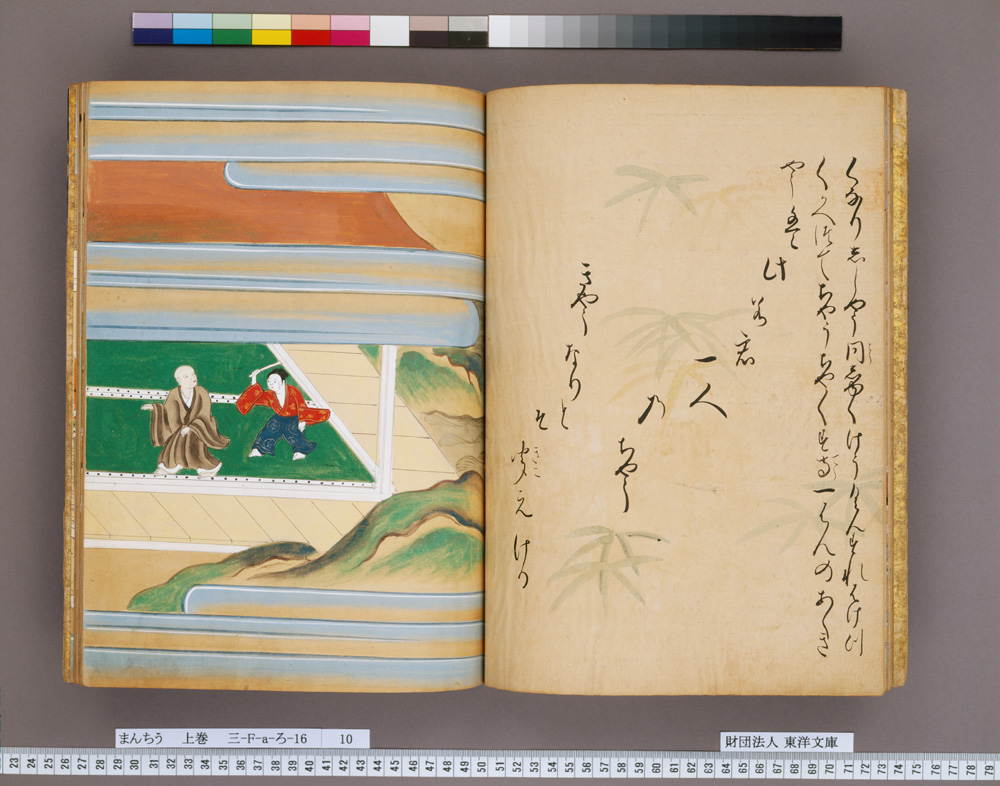 くなりししやう同しゆくけうくんすれはけつ
くかへつてちやうちやくす一さんのあくき
やうは
此
若
君
一人
の
ちやう
きやう
なりと
そ
聞えけり
きこ
まんちう 上巻 三-F-a-ろ-16 10
財団法人 東洋文庫
23 24 25 26 27 28 29 30 31 32 33 34 35 36 37 38 39 40 41 42 43 44 45 46 47 48 49 50 51 52 53 54 55 56 57 58 59 60 61 62 63 64 65 66 67 68 69 70 71 72 73 74 75 76 77 78 79